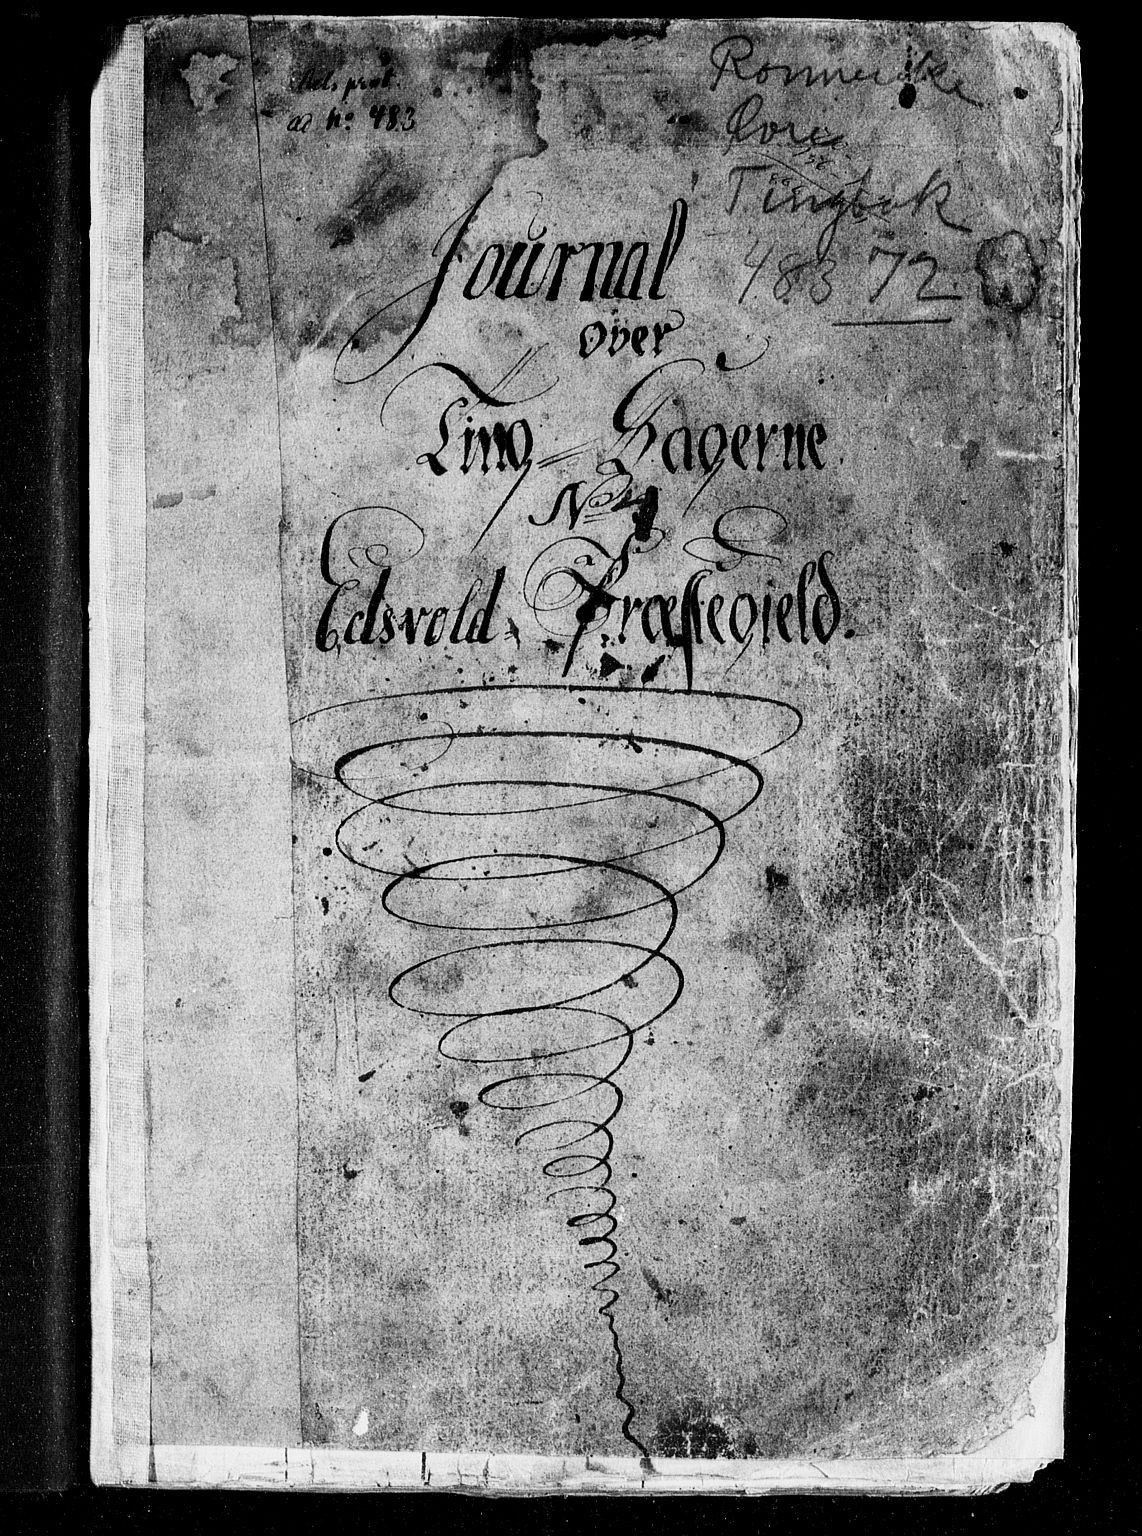 prot.
ad No 483
Romerike
Øvre
Tingbok
483 72
Journal
over
Ting-Sagerne
No 4
Edsvold Præstegield.